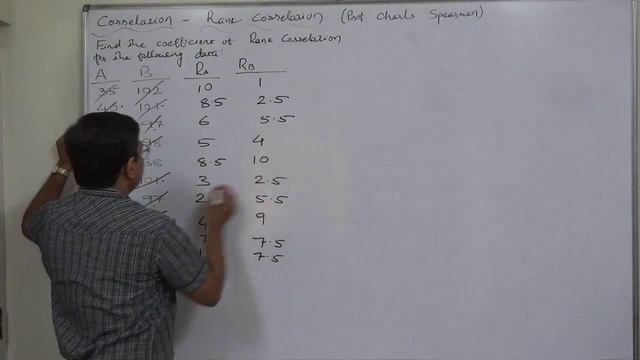 Correlation - Rank Correlation (Prof Charls Spearman)
Find the coefficient of Rank Correlation
for the following data:
A B RA RB
35 102 10 1
101. 8.5 2.5
97 6 5.5
98 5 4
88 8.5 10
101. 3 2.5
97 2 5.5
4 9
7 7.5
1 7.5